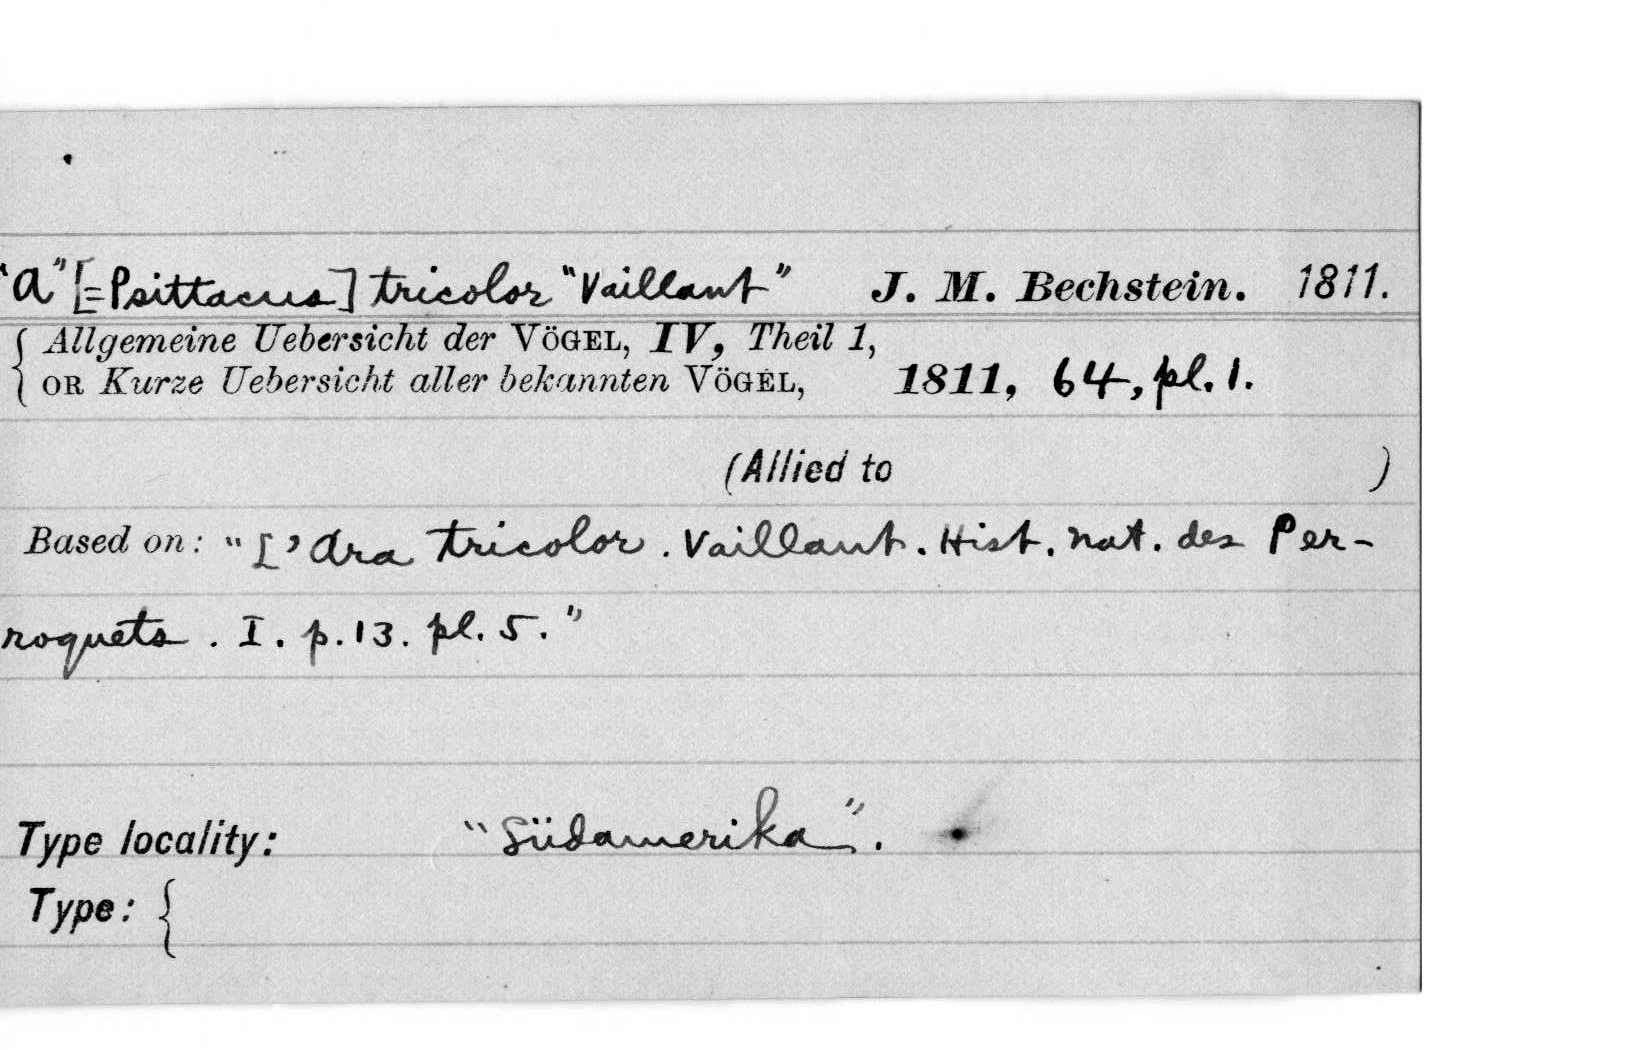 "a" [=Psittacus] tricolor "Vaillant" J. M. Bechstein. 1811.
{ Allgemeine Uebersicht der VÖGEL, IV, Theil 1,
OR Kurze Uebersicht aller bekannten VÖGEL, 1811, 64, pl. 1.
(Allied to )
Based on: "L'Ara tricolor. Vaillant. Hist. nat. des Per-
roquets. I. p. 13. pl. 5."
Type locality: "Südamerika".
Type: {